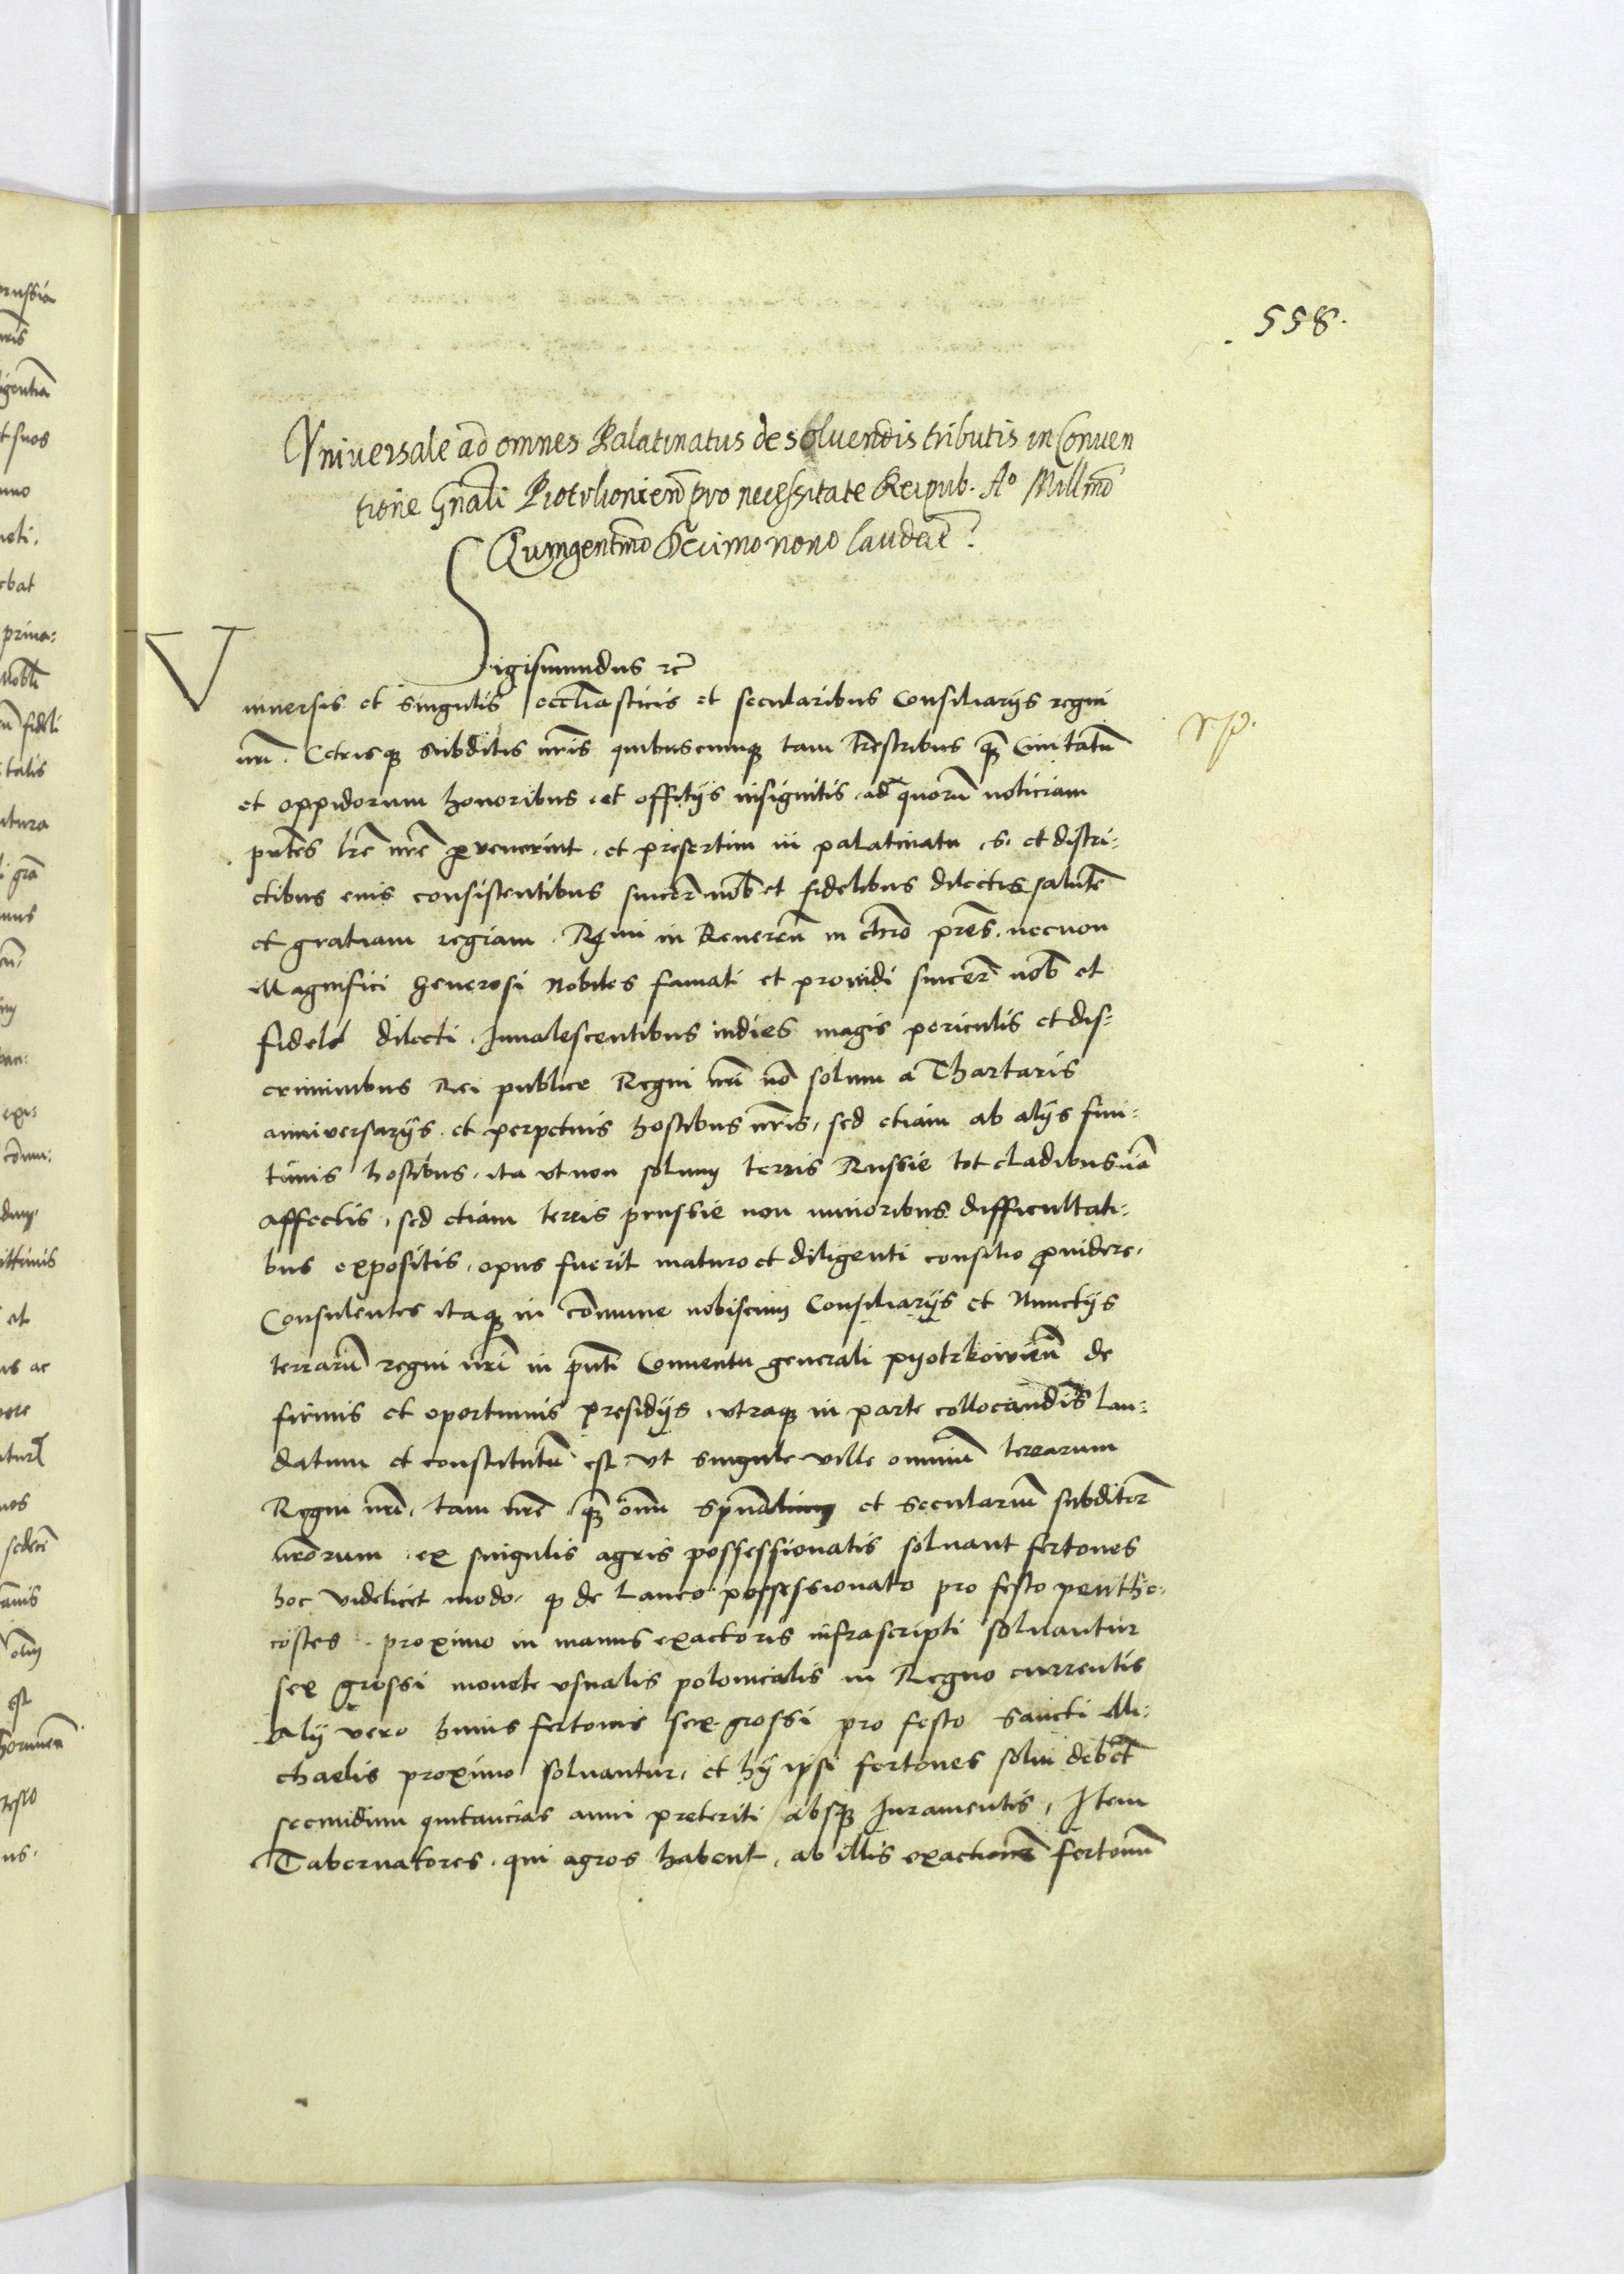 558.
Vniversale ad omnes Palatinatus de soluendis tributis in Conuen
tione Gnali Piotrkoviens pro necessitate Reipub. Ao Millmo
Quingentmo Decimo nono laudat.
Sigismundus rc
Vniuersis et singulis eccliasticis et secularibus Consiliarijs regni
nri. Cetrisq subditis nris quibuscumq tam trestribus q Ciuitatu
et oppidorum honoribus et offitijs insignitis ad quoru noticiam
pntes lre nre pvenerint. et presertim in palatinatu .s. et distri-
ctibus eius consistentibus sincere nob et fidelibus dilectis salute
et gratiam regiam. Rmi in Reueren in chro pres. necnon
Magnifici generosi Nobiles famati et prouidi sincere nob et
fideles dilecti. Inualescentibus indies magis periculis et dis-
criminibus Rei publice Regni nri no solum a Thartaris
anniversarijs et perpetuis hostibus nris, sed etiam ab alijs fini-
timis hostibus. ita vt non solum terris Russie tot cladibus ia
affectis, sed etiam terris prussie non minoribus difficultati-
bus expositis, opus fuerit maturo et diligenti consilio puidere.
Consulentes itaq in comune nobiscum Consiliarijs et Nunctijs
terraru regni nri in pnti Conuentu generali pyotrkowien de
firmis et oportunis presidijs vtraq in parte collocandis lau-
datum et constitutu est vt singule ville omniu terrarum
Regni nri, tam nre q omu spualium et seculariu subditor
nrorum ex singulis agris possessionatis soluant fertones
hoc videlicet modo. q de laneo possessionato pro festo penthe-
costes proximo in manus exactoris infrascripti soluantur
sex grossi monete vsualis polonicalis in Regno currentis
alij vero huius fertonis sex grossi pro festo sancti Mi-
chaelis proximo soluantur, et hij ipsi fertones solui debet
secundum quitancias anni preteriti absq Iuramentis, Item
Tabernatores. qui agros habent, ab illis exactione fertonu